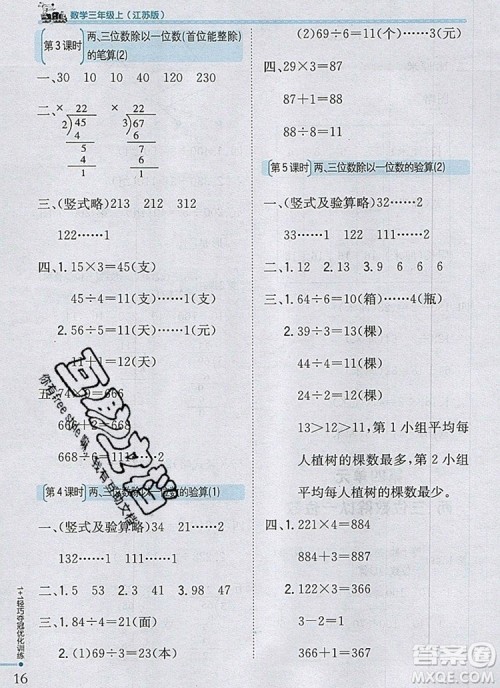 数学三年级上(江苏版)
第3课时 两、三位数除以一位数(首位能整除)的笔算(2)
一、30 10 110 10 230 210
二、× 22 × 22
2)45 3)67
4 6
5 6
4 6
1 1
三、(竖式略)213 212 312
122……1
四、1.15×3=45(支)
45÷4=11(支)……1(支)
2.56÷5=11(天)……1(元)
11+1=12(天)
五、74×9=666
666+2=668
668÷9=111……2
第4课时 两、三位数除以一位数的验算(1)
一、(竖式及验算略)31……1 21
132……1 111……1
二、1.53 84 2.93 3.98
三、1.84÷4=21(面)
2.(1)69÷3=23(本)
(2)69÷6=11(个)……3(元)
四、29×3=87
87+1=88
88÷4=22
第5课时 两、三位数除以一位数的验算(2)
一、(竖式及验算略)32……2
33……1 131 111……2
二、1.12 24 2.39 3.13
三、1.64÷6=10(箱)……4(瓶)
2.39÷3=13(棵)
44÷4=11(棵)
24÷2=12(棵)
13>12>11,第1小组平均每
人植树的棵数最多,第2小组平均
每人植树的棵数最少。
四、1.221×4=884
884+3=887
2.122×3=366
366-1=365
3.121×3=363
363+1=364
364÷4=91
1+1轻巧夺冠优化训练
16
答案圈
MXQE.COM